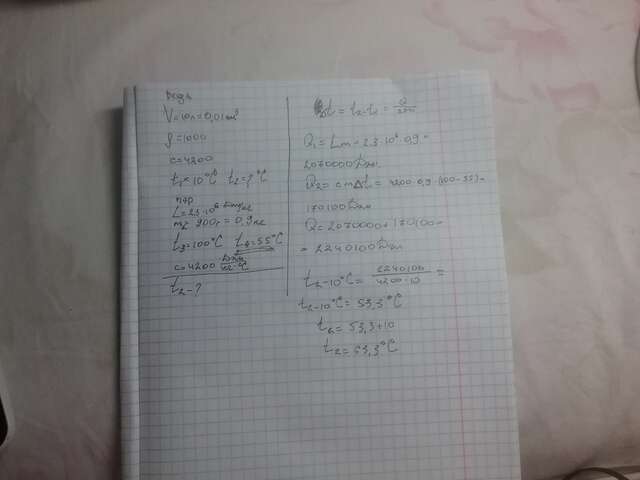 Вода
V=10л=0,01м³
ρ=1000
c=4200
t₁=10°C t₂=?°C
пар
L=2,3·10⁶ Дж/кг
m=900г=0,9кг
t₃=100°C t₄=55°C
c=4200 Дж/кг·°C
t₂-?
Δt=t₂-t₁=Q/
Q₁=Lm=2,3·10⁶·0,9=
2070000Дж
Q₂=cmΔt=4200·0,9·(100-55)=
170100Дж
Q=2070000+170100=
=2240100Дж
t₂-10°C=2240100/4200·10=
t₂-10°C=53,3°C
t₂=53,3+10
t₂=63,3°C